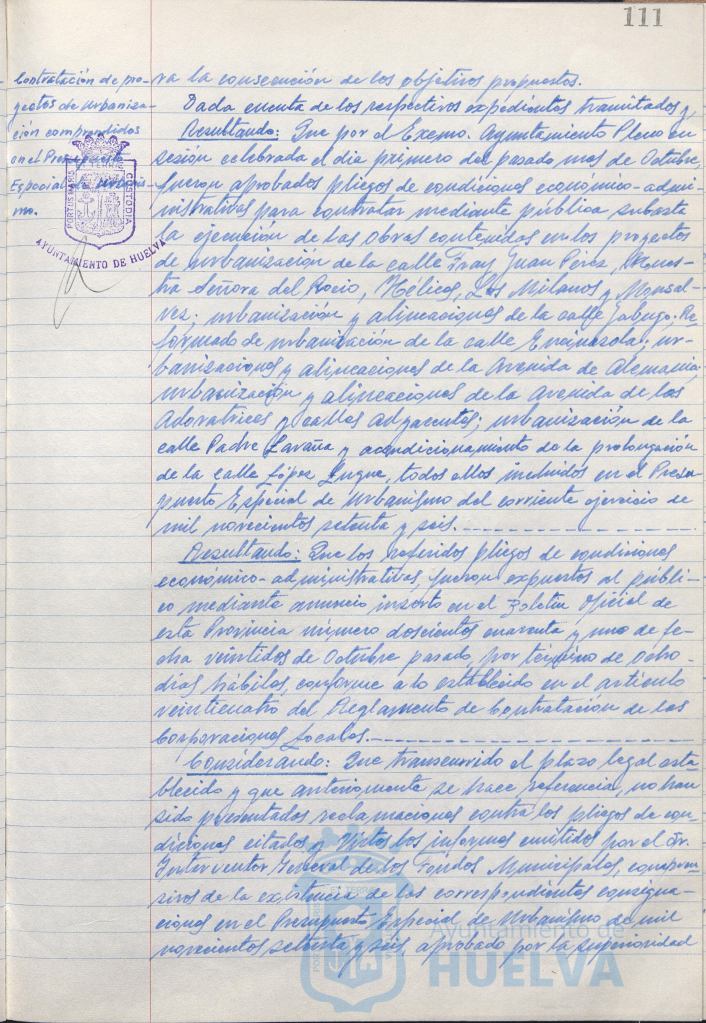 111
Contratación de pro-
yectos de urbaniza-
ción comprendidos
en el Presupuesto
Especial de Urbanis-
mo.
PORTUS MARIS ET TERRAE CUSTODIA
AYUNTAMIENTO DE HUELVA
ra la consecución de los objetivos propuestos.
Dada cuenta de los respectivos expedientes tramitados y,
Resultando: Que por el Excmo. Ayuntamiento Pleno en
sesión celebrada el día primero del pasado mes de Octubre,
fueron aprobados pliegos de condiciones económico-admi-
nistrativas para contratar mediante pública subasta
la ejecución de las obras contenidas en los proyectos
de urbanización de la calle Fray Juan Pérez, Nues-
tra Señora del Rocío, Hélices, Los Milanos y Monsal-
vez; urbanización y alineaciones de la calle Jabugo; Re-
formado de urbanización de la calle Encinasola; ur-
banizaciones y alineaciones de la Avenida de Alemania;
urbanización y alineaciones de la Avenida de las
Adoratrices y calles adyacentes; urbanización de la
calle Padre Laraña y acondicionamiento de la prolongación
de la calle López Luque, todos ellos incluidos en el Presu-
puesto Especial de Urbanismo del corriente ejercicio de
mil novecientos setenta y seis.
Resultando: Que los referidos pliegos de condiciones
económico-administrativas, fueron expuestos al públi-
co mediante anuncio inserto en el Boletín Oficial de
esta Provincia número doscientos cuarenta y uno de fe-
cha veintidós de Octubre pasado, por término de ocho
días hábiles, conforme a lo establecido en el artículo
veinticuatro del Reglamento de Contratación de las
Corporaciones Locales.
Considerando: Que transcurrido el plazo legal esta-
blecido y que anteriormente se hace referencia, no han
sido presentadas reclamaciones contra los pliegos de con-
diciones citados y Vistos los informes emitidos por el Sr.
Interventor General de los Fondos Municipales, compren-
sivos de la existencia de las correspondientes consigna-
ciones en el Presupuesto Especial de Urbanismo de mil
novecientos setenta y seis, aprobado por la superioridad
Ayuntamiento de
HUELVA